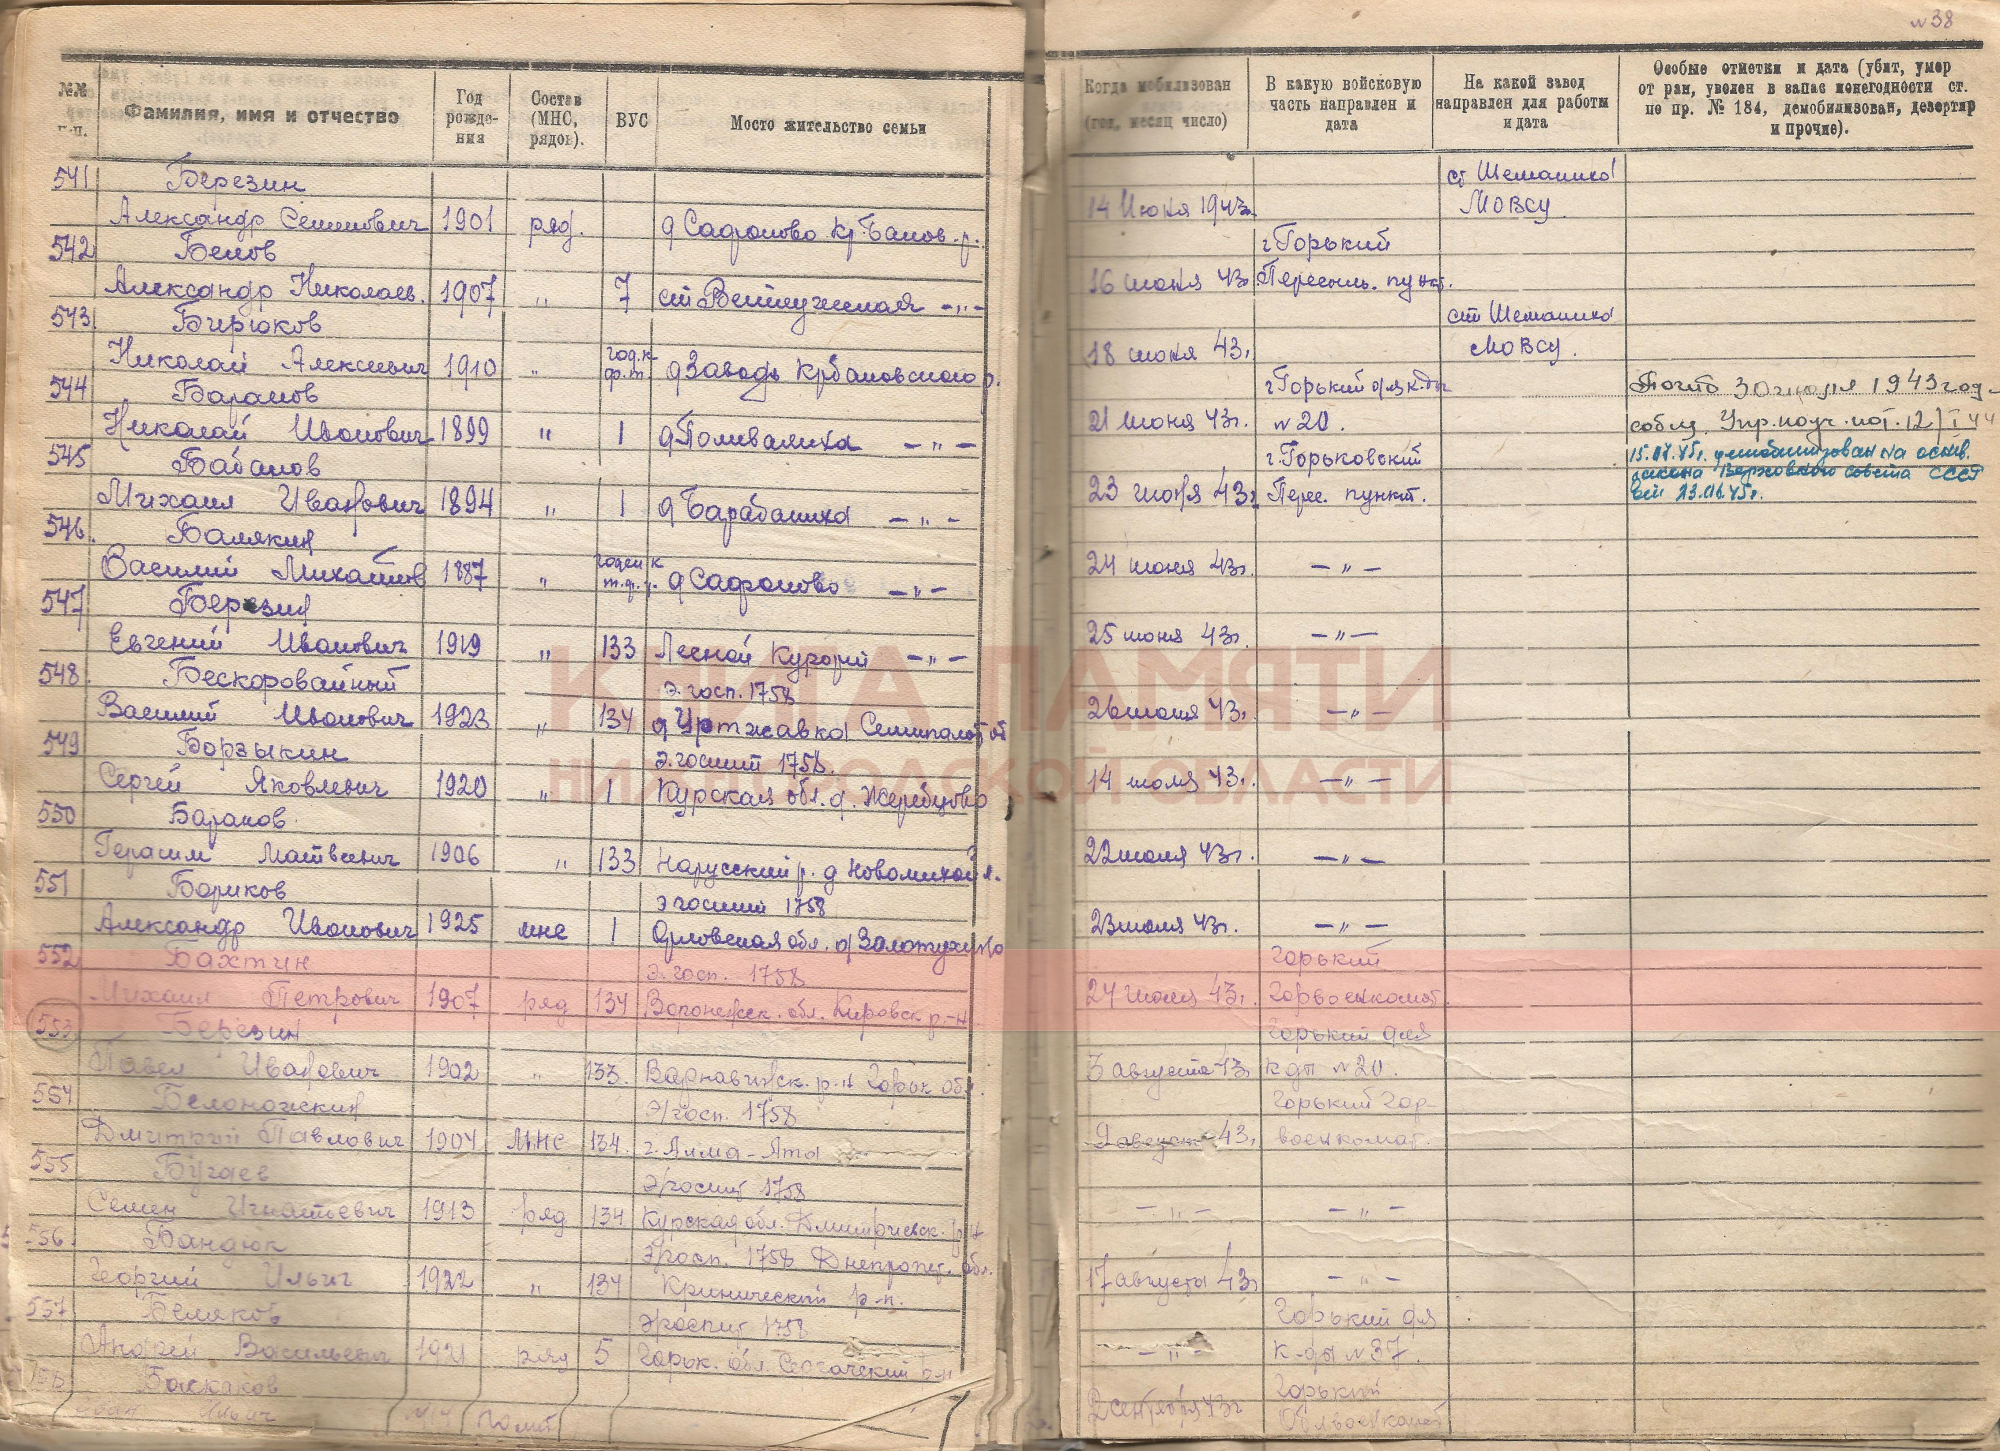 №38
№№ п.п.
Фамилия, имя и отчество
Год рожде-ния
Состав (МНС, рядов).
ВУС
Мосто жительство семьи
Когда мобилизован (год, месяц число)
В какую войсковую часть направлен и дата
На какой завод направлен для работы и дата
Особые отметки и дата (убит, умер от ран, уволен в запас по негодности ст. по пр. № 184, демобилизован, дезертир и прочие).
541 Березин ст Шеманиха
Александр Семенович 1901 ряд. д Сафоново Кр.Баков. р. 14 Июня 1943г. МОВСУ.
542 Белов г Горький
Александр Николаев. 1907 „ 7 ст Ветлужская -„- 16 июня 43 Пересыль. пункт.
543 Бирюков ст Шеманиха
Николай Алексеевич 1910 „ год. к ф.т. д Заводь Кр Баковского р. 18 июня 43г МОВСУ.
544 Баранов г Горький для к-ды Погиб 30 1943 год
Николай Иванович 1899 „ 1 д Поливаниха -„- 21 июня 43г. №20.
545 Бабанов г Горьковский 15.07.45г. демобилизован на основ. закона Верховного совета СССР
Михаил Иванович 1894 „ 1 д Барабаниха -„- 23 июня 43г Перес. пункт. от 23.06.45г.
546 Балякин
Василий Михайлов 1887 „ годен к д Сафоново -„- 24 июня 43г. -„-
547 Березин
Евгений Иванович 1919 „ 133 Лесной Курорт -„- 25 июня 43г. -„-
548 Бескоровайный Э. госп. 1758
Василий Иванович 1923 „ 134 д Уртжавка Семипалат об 26 июня 43г. -„-
549 Борзыкин Э. госпит 1758.
Сергей Яковлевич 1920 „ 1 Курская обл. д. Жеребцово 14 июля 43г. -„-
550 Баранов
Герасим Матвеевич 1906 „ 133 Нарусский р. д Новомихайл. 22 июля 43г. -„-
551 Бориков Э госпит 1758
Александр Иванович 1925 мнс 1 Орловская обл. д Золотухино 23 июля 43г. -„-
552 Бахтин Э. госп. 1758 Горький
Михаил Петрович 1907 ряд 134 Воронежск. обл. Кировск р-н 24 июля 43г. Горвоенкомат.
553 Березин Горький для
Павел Иванович 1902 „ 133. Варнавинск. р-н Горьк обл. 3 августа 43г к-ды №20.
554 Белоножкин Э/госп. 1758 Горький Гор-
Дмитрий Павлович 1904 МНС 134. г. Алма-Ата 9 август 43г. военкомат.
555 Бугаев Э/госпит 1758
Семен Игнатьевич 1913 ряд 134 Курская обл. Дмитриевск. р-н -„- -„-
556 Бандюк Э/госп. 1758 Днепропет. обл.
Георгий Ильич 1922 „ 134 Кринический р-н. 17 августа 43г -„-
557 Беляков Э/госпит 1758 Горький для
Андрей Васильевич 1921 ряд 5 Горьк. обл. Сергачский р-н -„- к-ды №37.
Баскаков Горький
Иван Ильич 2 сентября 43г Облвоенкомат
КНИГА ПАМЯТИ
НИЖЕГОРОДСКОЙ ОБЛАСТИ